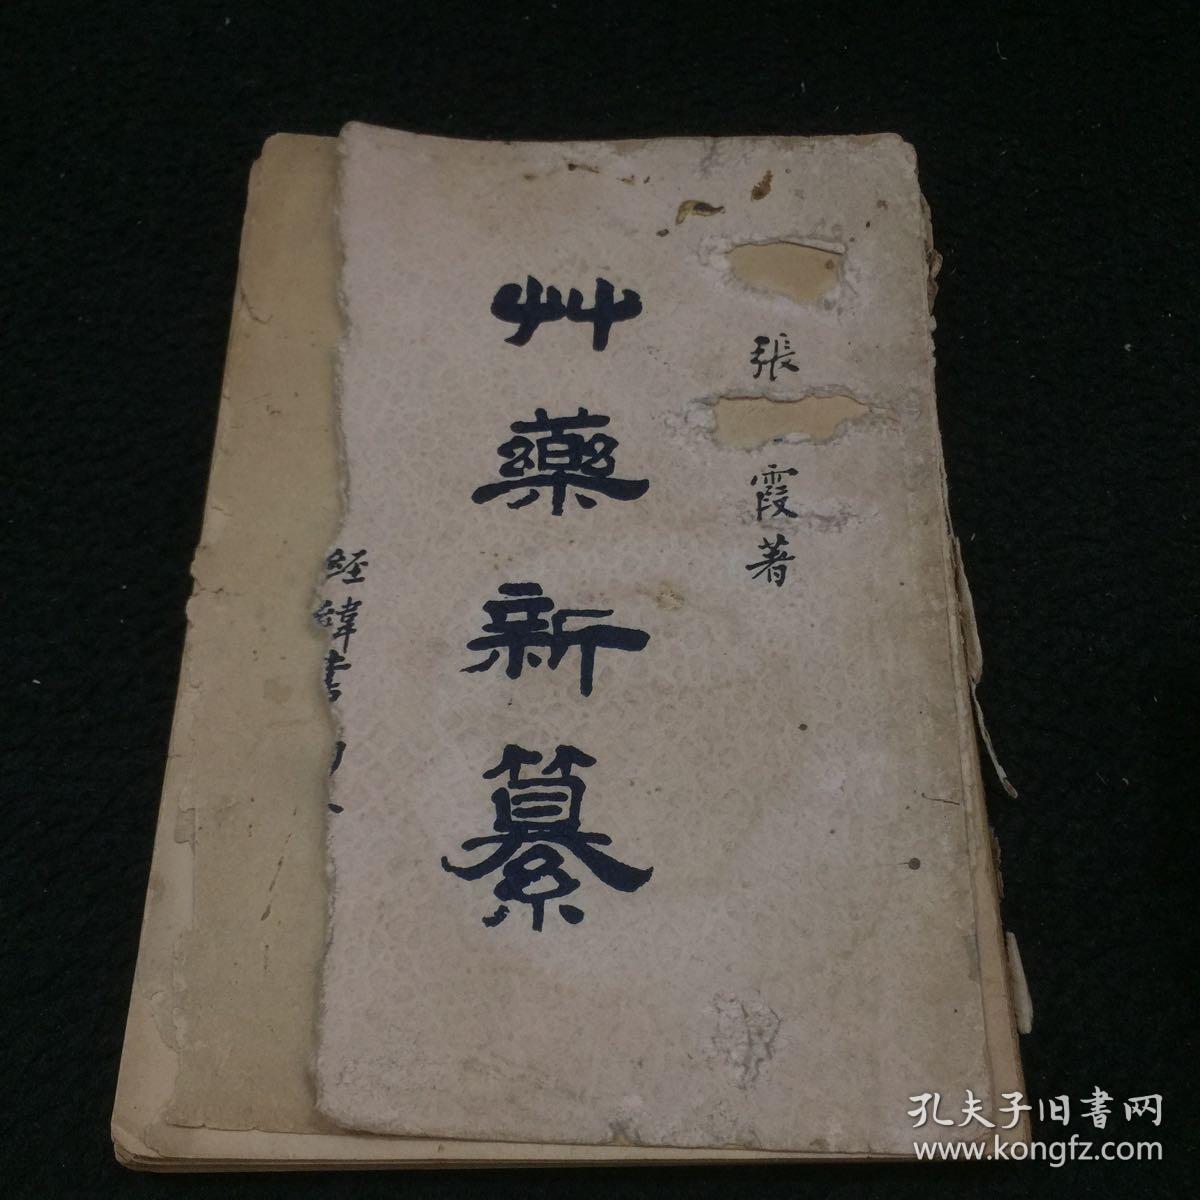 張
霞著
艸藥新纂
經緯書
孔夫子旧書网
www.kongfz.com